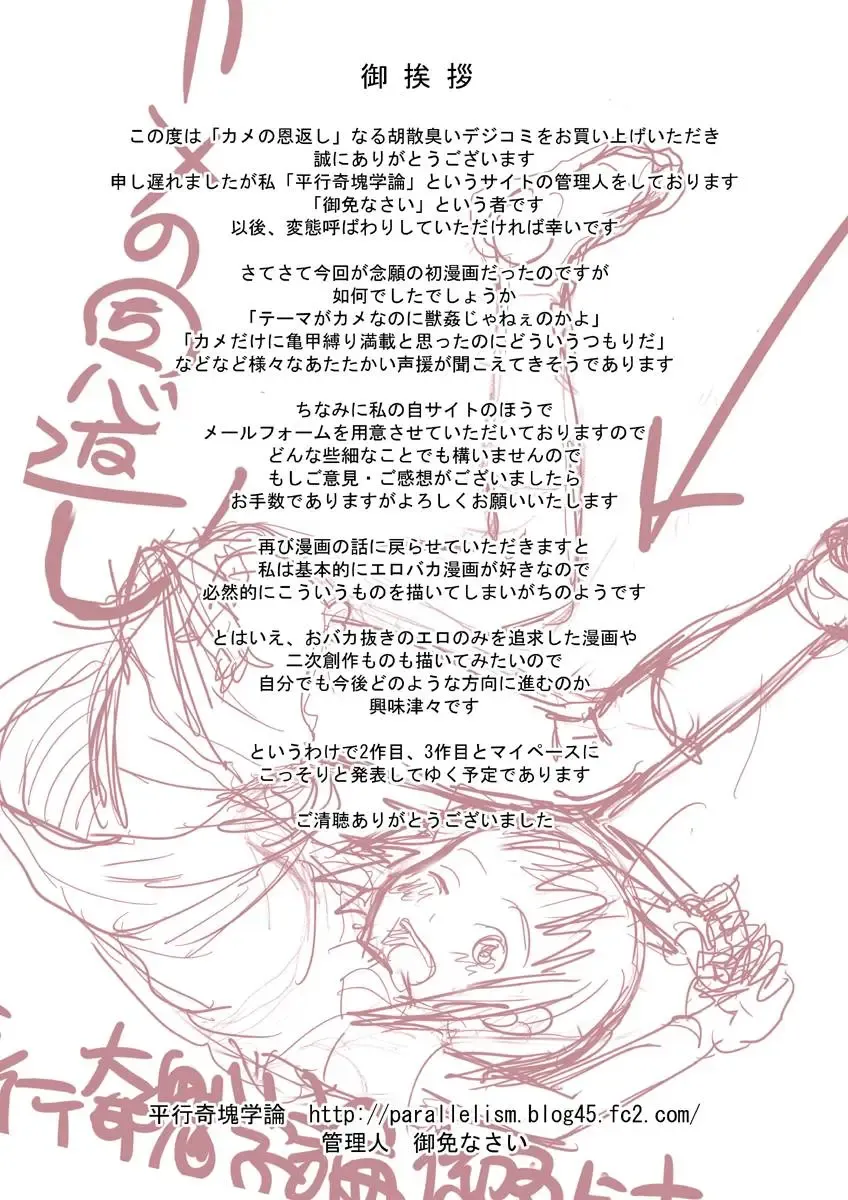 御挨拶
この度は「カメの恩返し」なる胡散臭いデジコミをお買い上げいただき
誠にありがとうございます
申し遅れましたが私「平行奇塊学論」というサイトの管理人をしております
「御免なさい」という者です
以後、変態呼ばわりしていただければ幸いです
さてさて今回が念願の初漫画だったのですが
如何でしたでしょうか
「テーマがカメなのに獣姦じゃねぇのかよ」
「カメだけに亀甲縛り満載と思ったのにどういうつもりだ」
などなど様々なあたたかい声援が聞こえてきそうであります
ちなみに私の自サイトのほうで
メールフォームを用意させていただいておりますので
どんな些細なことでも構いませんので
もしご意見・ご感想がございましたら
お手数でありますがよろしくお願いいたします
再び漫画の話に戻らせていただきますと
私は基本的にエロバカ漫画が好きなので
必然的にこういうものを描いてしまいがちのようです
とはいえ、おバカ抜きのエロのみを追求した漫画や
二次創作ものも描いてみたいので
自分でも今後どのような方向に進むのか
興味津々です
というわけで2作目、3作目とマイペースに
こっそりと発表してゆく予定であります
ご清聴ありがとうございました
カメの恩返し
平行奇塊学論　http://parallelism.blog45.fc2.com/
管理人　御免なさい